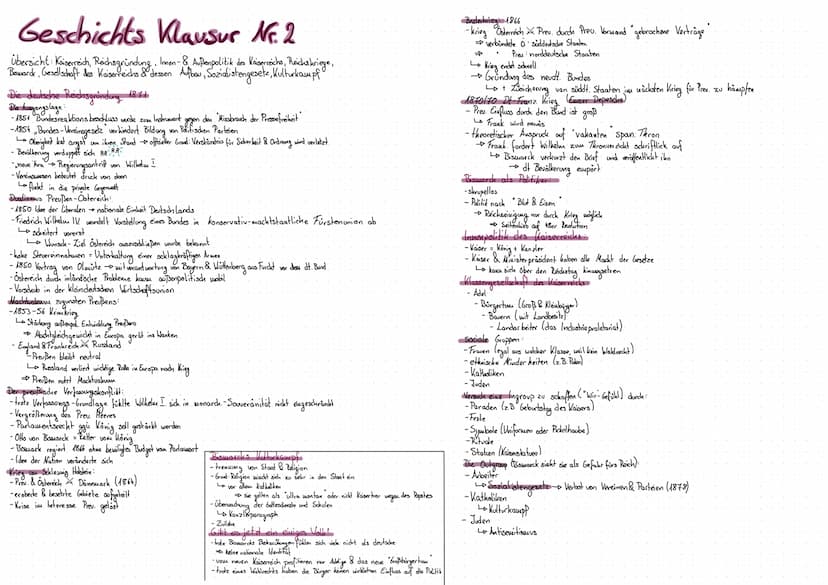 Geschichts Klausur Nr. 2
Übersicht: Kaiserreich, Reichsgründung, Innen- & Außenpolitik des Kaiserreichs, Reichskriege,
Bismarck, Gesellschaft des Kaiserreichs & dessen Aufbau, Sozialistengesetz, Kulturkampf
Die deutsche Reichsgründung 1871
Die Ausgangslage:
- 1851 Bundesreaktionsbeschluss wurde zum Instrument gegen den "Missbrauch der Pressefreiheit"
- 1854 "Bundes-Vereinsgesetz" verhindert Bildung von Politischen Parteien
↳ Obrigkeit hat Angst um ihren Stand → offizieller Grund: Verständnis für Sicherheit & Ordnung wird verletzt
- Bevölkerung verdoppelt sich
- "neue Ära" → Regierungsantritt von Wilhelm I.
- Vereinswesen bedeutet Druck von oben
↳ flieht in die private Gegenwelt
Dualismus Preußen-Österreich:
- 1850 Idee der Liberalen → nationale Einheit Deutschlands
- Friedrich Wilhelm IV. wandelt Vorstellung eines Bundes in konservativ-machtstaatliche Fürstenunion ab
↳ scheitert vorerst
↳ Wunsch-Ziel Österreich auszuschließen wurde bekannt
- hohe Steuereinnahmen = Unterhaltung einer schlagkräftigen Armee
- 1850 Vertrag von Olmütz → mit Verantwortung von Bayern & Württenberg aus Furcht vor dem dt. Bund
- Österreich durch inländische Probleme kaum außenpolitisch wohl
- Vorsprung in der kleindeutschen Wirtschaftsunion
Machtausbau zugunsten Preußens:
- 1853-56 Krimkrieg
↳ Stärkung außenpol. Entwicklung Preußens
⇒ Machtgleichgewicht in Europa gerät ins Wanken
- England & Frankreich ⚔ Russland
↳ Preußen bleibt neutral
↳ Russland verliert wichtige Rolle in Europa nach Krieg
⇒ Preußen nutzt Machtausbau
Der preußische Verfassungskonflikt:
- trotz Verfassungs-Grundlage fühlte Wilhelm I. sich in monarch. Souveränität nicht eingeschränkt
- Vergrößerung des Preu. Heeres
- Parlamentsrecht ggü. König soll gestärkt werden
- Otto von Bismarck = Retter vom König
- Bismarck regiert 1864 ohne bewilligtes Budget vom Parlament
- Idee der Nation veränderte sich
Krieg um Schleswig Holstein:
- Preu. & Österreich ⚔ Dänemark (1864)
- eroberte & besetzte Gebiete aufgeteilt
- Krise im Interesse Preu. gelöst
Bismarcks Kulturkampf
- trennung von Staat & Religion
- Grund: Religion mischt sich zu sehr in den Staat ein
↳ vor allem Katholiken
⇒ sie galten als "ultra montan" oder nicht Kaisertreu wegen des Papstes
- Überwachung der Gottesdienste und Schulen
↳ Kanzelparagraph
- Zivilehe
Gibt es jetzt ein einiges Volk?
- trotz Bismarcks Bemühungen fühlen sich viele nicht als deutsche
⇒ keine nationale Identität
- vom neuen Kaiserreich profitieren nur Adelige & das neue "Großbürgertum"
- trotz eines Wahlrechts haben die Bürger keinen wirklichen Einfluss auf die Politik
Bruderkrieg 1866
- Krieg Österreich ⚔ Preu. durch Preu. Vorwand "gebrochene Verträge"
⇒ verbündete Ö: süddeutsche Staaten
⇒ " Preu: norddeutsche Staaten
↳ Krieg endet schnell
⇒ Gründung des neudt. Bundes
↳ + Zusicherung von süddt. Staaten im nächsten Krieg für Preu. zu kämpfen
1870/70 Dt-Franz. Krieg (Emser Depesche)
- Preu. Einfluss durch den Bund ist groß
↳ Frank. wird nervös
- theoretischer Anspruch auf "vakanten" span. Thron
⇒ Frank. fordert Wilhelm zum Thronverzicht schriftlich auf
↳ Bismarck verkürzt den Brief und veröffentlicht ihn
⇒ dt Bevölkerung empört
Bismarck als Politiker:
- skrupellos
- Politik nach "Blut & Eisen"
⇒ Reichseinigung nur durch Krieg möglich
⇒ Seitenhieb auf 48er Revolution
Innenpolitik des Kaiserreichs
- Kaiser = König + Kanzler
- Kaiser & Ministerpräsident haben alle Macht der Gesetze
↳ kann sich über den Reichstag hinwegsetzen
Klassengesellschaft des Kaiserreichs
- Adel
- Bürgertum (Groß & Kleinbürger)
- Bauern (mit Landbesitz)
- Landarbeiter (das Industrieproletariat)
Soziale Gruppen:
- Frauen (egal aus welcher Klasse, weil kein Wahlrecht)
- ethnische Minderheiten (z.B. Polen)
- Katholiken
- Juden
Versuch eine Ingroup zu schaffen ("Wir-Gefühl") durch:
- Paraden (z.B Geburtstag des Kaisers)
- Feste
- Symbole (Uniformen oder Pickelhaube)
- Rituale
- Statuen (Kaiserstatuen)
Die Outgroup (Bismarck sieht sie als Gefahr fürs Reich):
- Arbeiter
↳ Sozialistengesetz → Verbot von Vereinen & Parteien (1878)
- Katholiken
↳ Kulturkampf
- Juden
↳ Antisemitismus